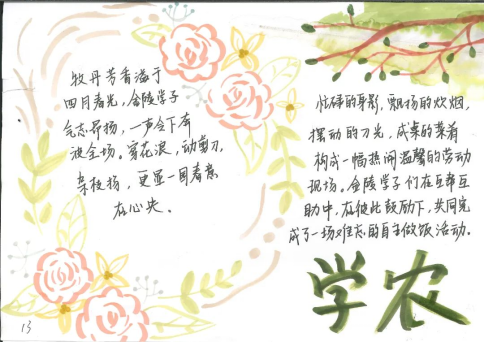 牡丹芳香溢于
四月春光，金陵学子
气志昂扬，一声令下奔
波全场。穿花浪，动剪刀，
杂枝扬，更显一园春意
在心央。
13
忙碌的身影，飘扬的炊烟，
摆动的刀光，成桌的菜肴
构成一幅热闹温馨的劳动
现场。金陵学子们在互帮互
助中，在彼此鼓励下，共同完
成了一场难忘的自主做饭活动。
学农